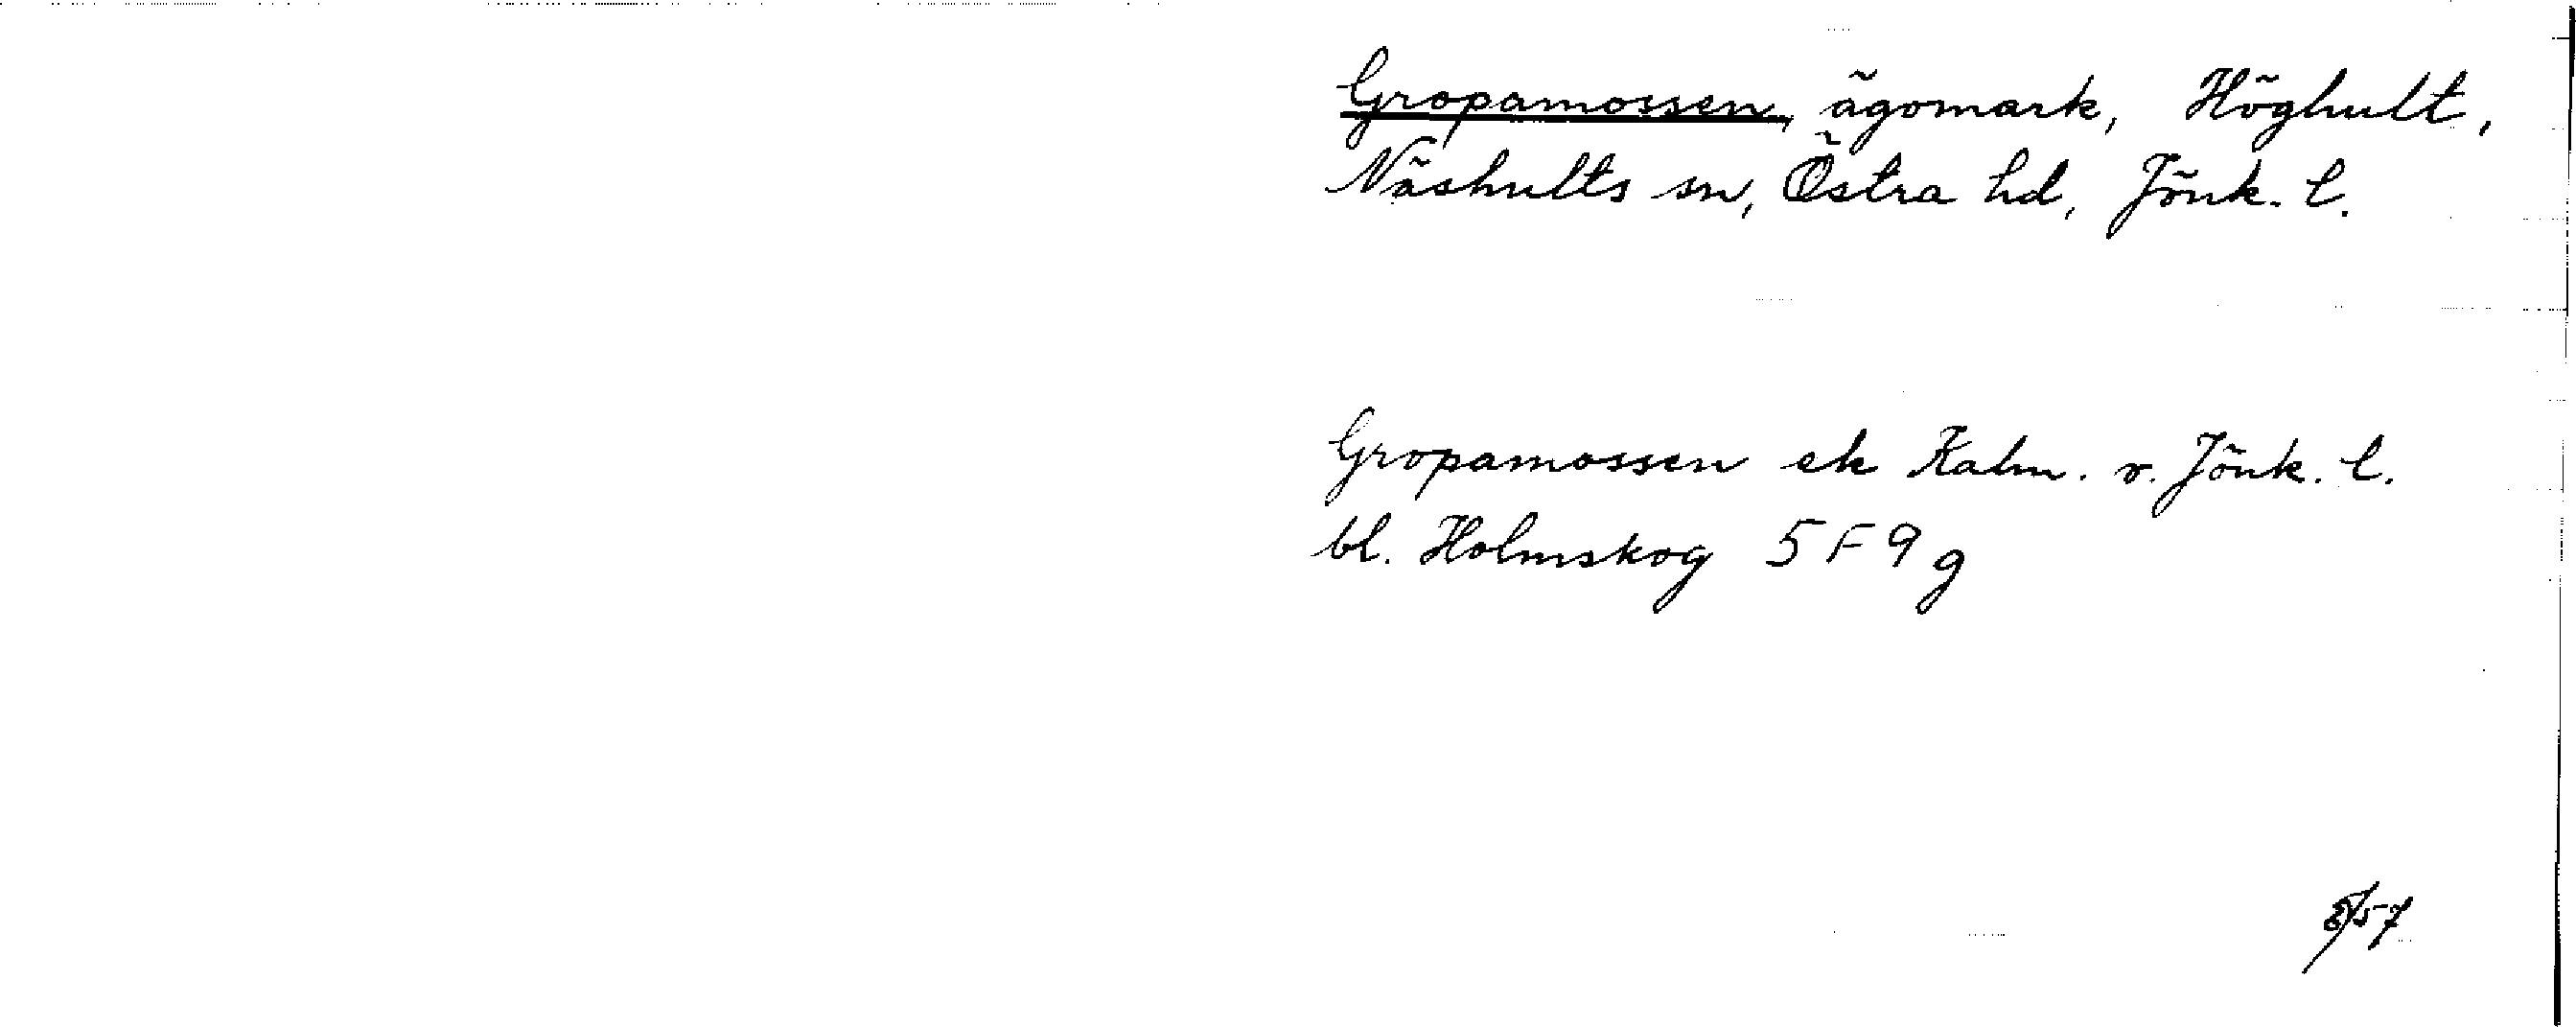 Gropamossen, ägomark, Höghult,
Näshults sn, Östra hd, Jönk. l.
Gropamossen ek Kalm. v. Jönk. l.
bl. Holmskog 5F9g